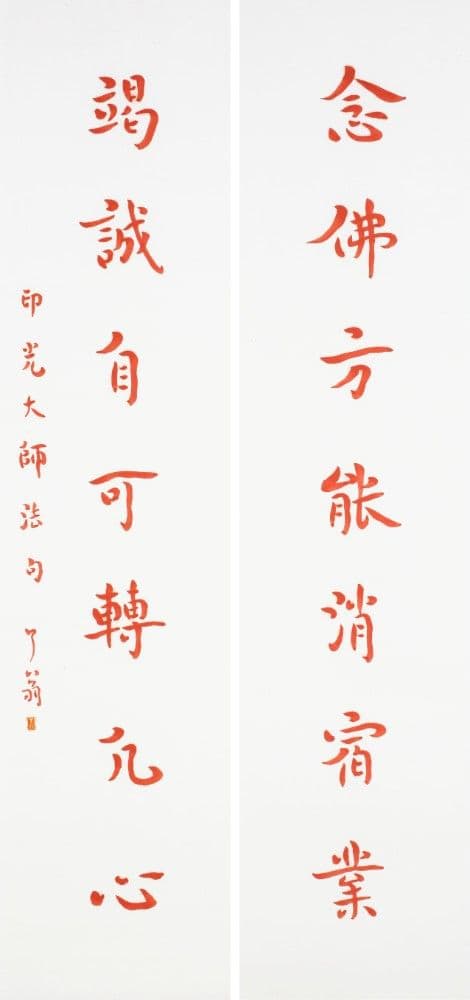 念佛方能消宿業
竭誠自可轉凡心
印光大師法句 了翁